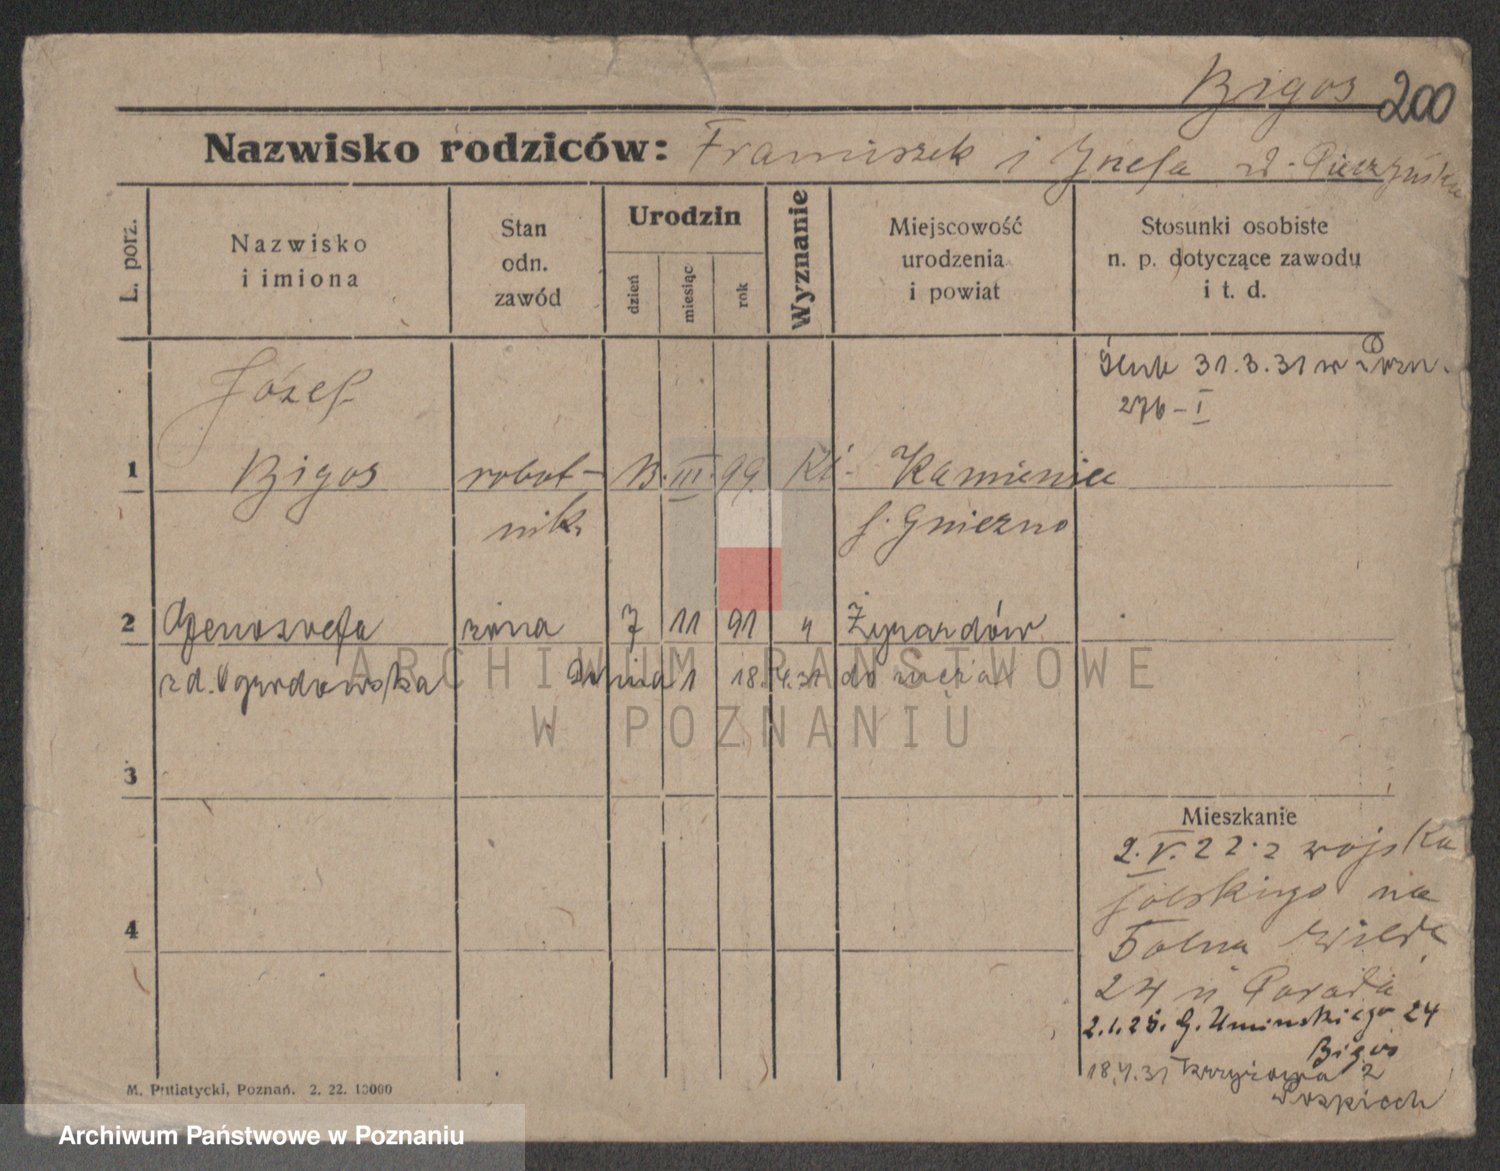 Bigos 200
Nazwisko rodziców: Franciszek i Józefa
L. porz.
Nazwisko
i imiona
Stan
odn.
zawód
Urodzin
dzień
miesiąc
rok
Wyznanie
Miejscowość
urodzenia
i powiat
Stosunki osobiste
n. p. dotyczące zawodu
i t. d.
Ślub 31.3.31 w Pozn.
276-I
Józef
1 Bigos robot- 13. III. 99. Kt. Kamieniec
nik p. Gniezno
2 Genowefa żona 7 11 91 " Żyrardów
zd. Ogrodowska 18.4.31 do męża
3
4
Mieszkanie
2.V.22 z wojska
polskiego na
Dolna Wilda
24 u
2.1.25. G. Umińskiego 24
Bigos
18.4.31 Krzyżowa 2
M. Putiatycki, Poznań. 2. 22. 10000
ARCHIWUM PAŃSTWOWE
W POZNANIU
Archiwum Państwowe w Poznaniu